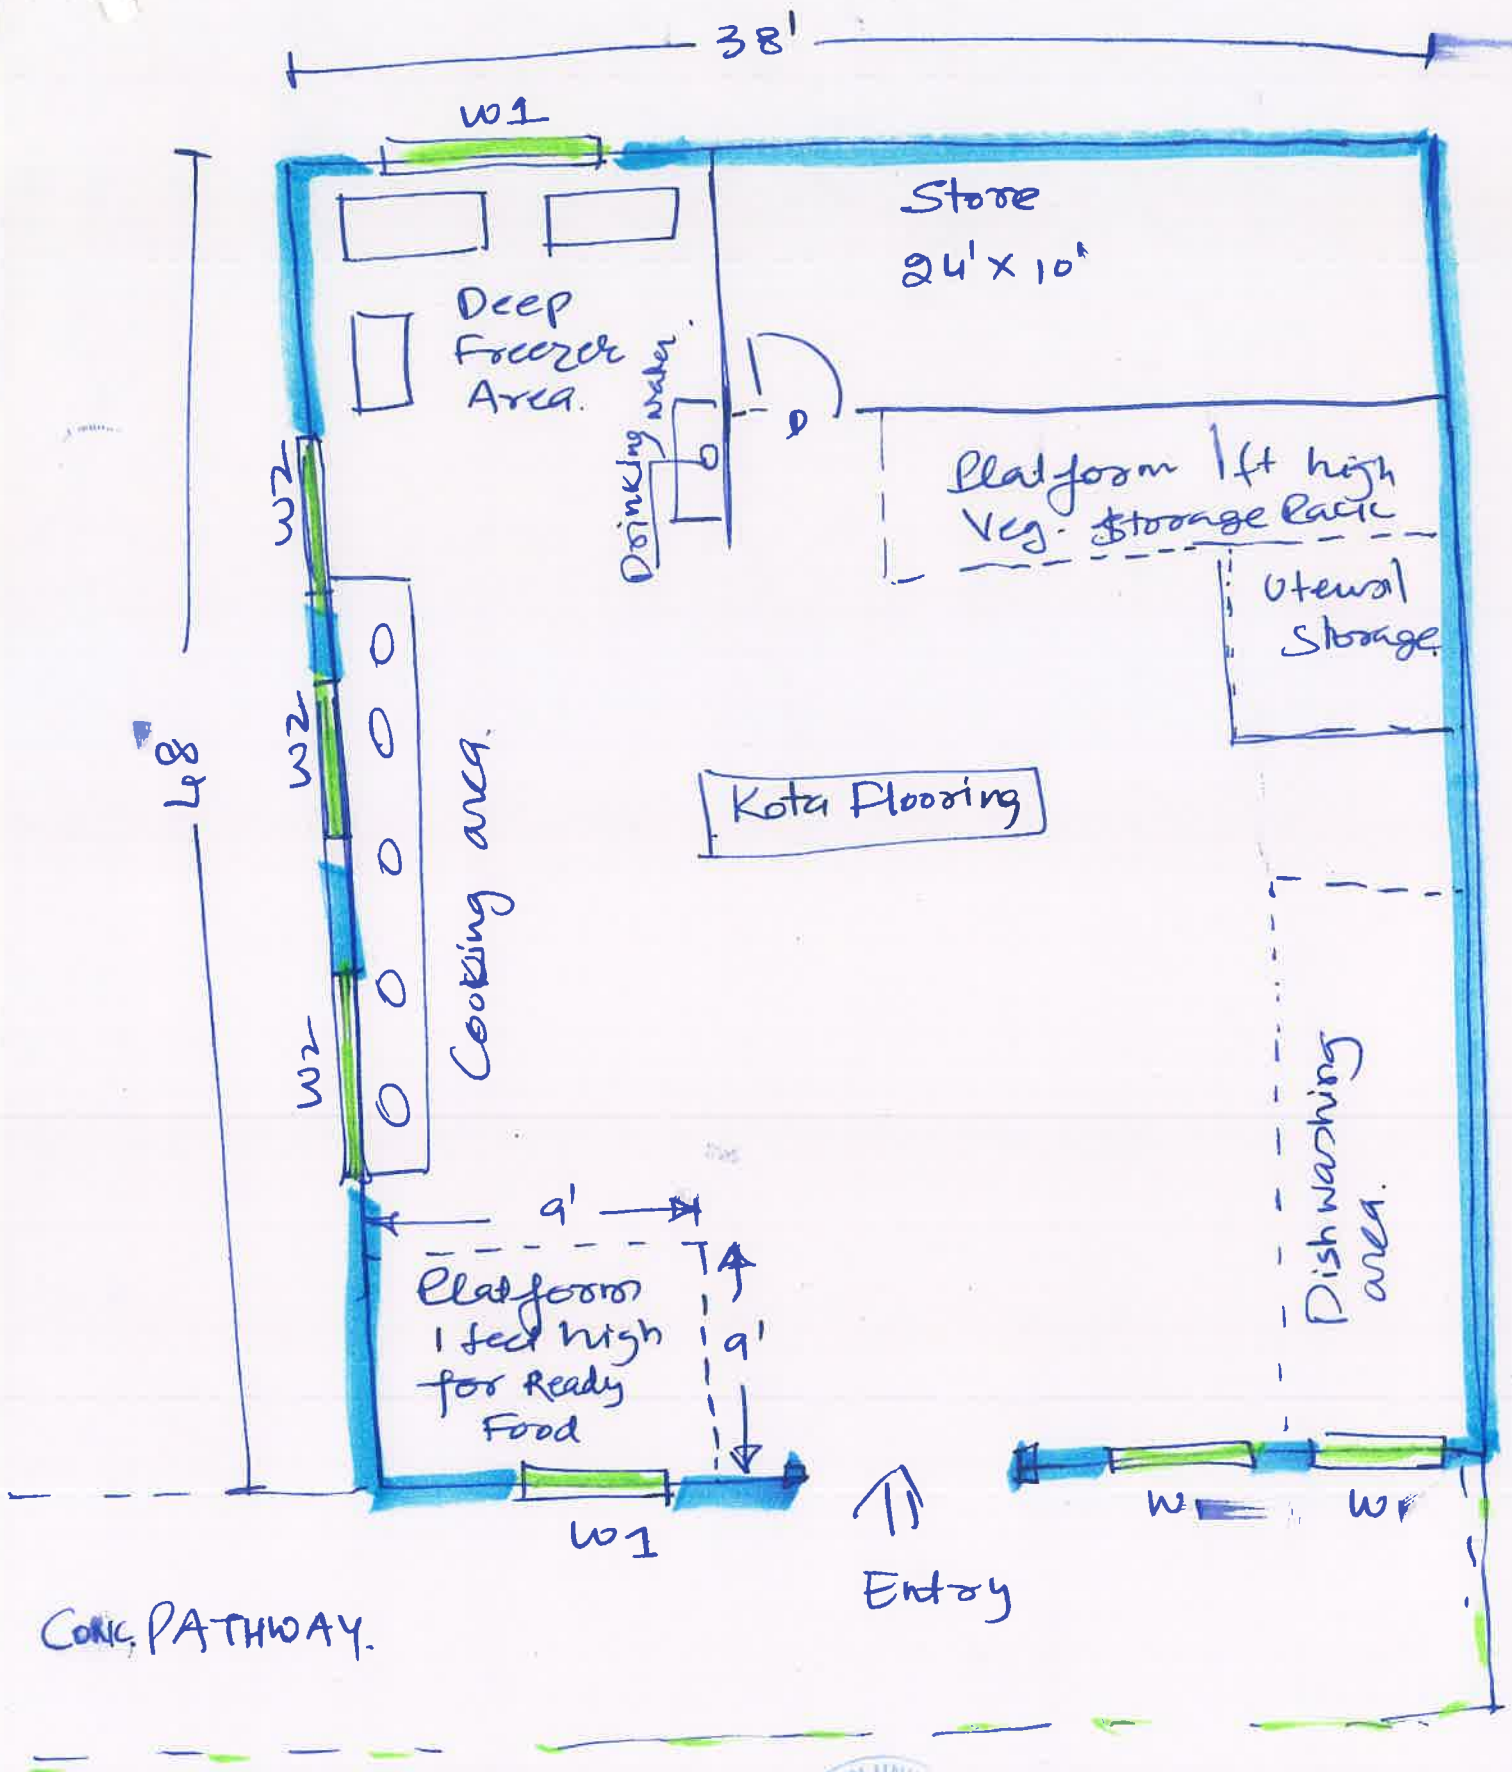 38'
W1
Store
24' x 10'
Deep
Freezer
Area.
Drinking water
D
Platform 1ft high
Veg. Storage Rack
Utensil
Storage
W2
W2
W2
48
Cooking area.
Kota Flooring
Dishwashing
area.
9'
9'
Platform
1 feet high
for Ready
Food
W1
W
W1
Entry
CONC. PATHWAY.